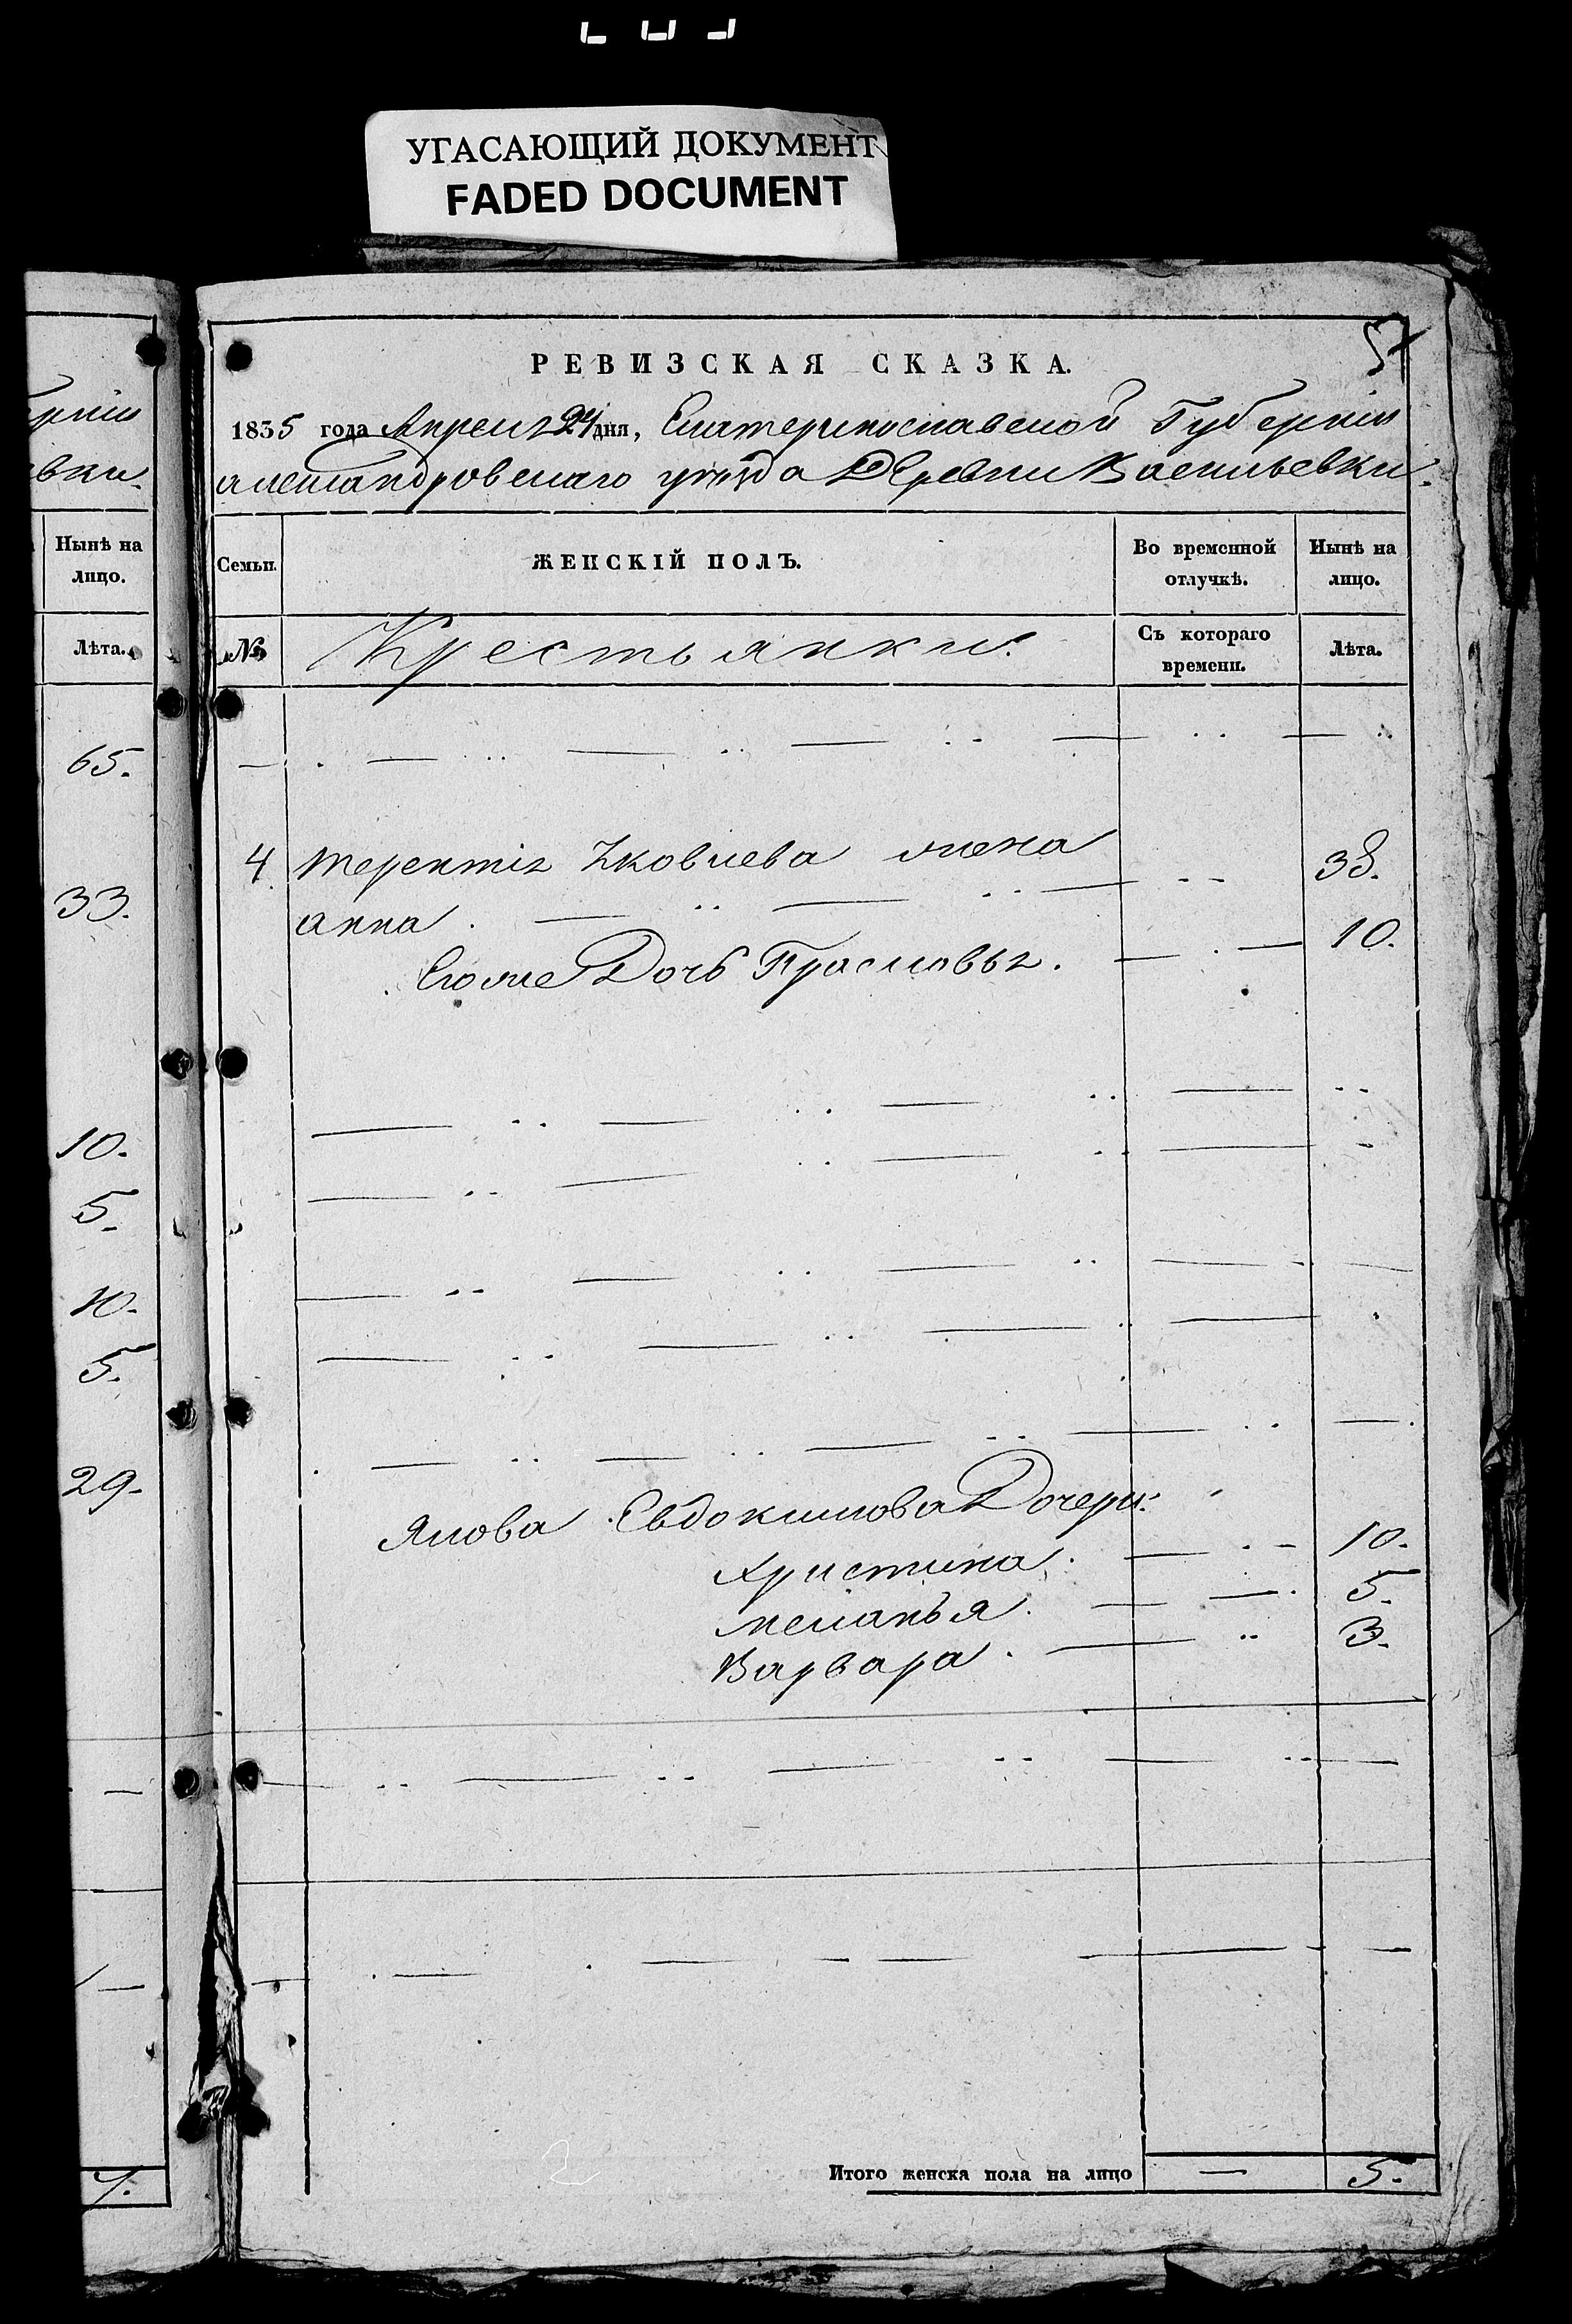 УГАСАЮЩИЙ ДОКУМЕНТ
FADED DOCUMENT
57
РЕВИЗСКАЯ СКАЗКА.
1835 года Апреля 24 дня, Екатеринославской Губернии
александровскаго уѣзда Деревни Васильевки.
Семьи.
ЖЕНСКІЙ ПОЛЪ.
Во временной отлучкѣ.
Нынѣ на лицо.
№
Крестьянки.
Съ котораго времени.
Лѣта.
4 терентія Яковлева жена
анна. 38.
Егоже Дочь Прасковья. 10.
Якова Евдокимова Дочери:
Христина. 10.
меланья. 5.
Варвара. 3.
Итого женска пола на лицо — 5.
ерніи
вки.
Нынѣ на лицо.
Лѣта.
65.
33.
10.
5.
10.
5.
29.
7.